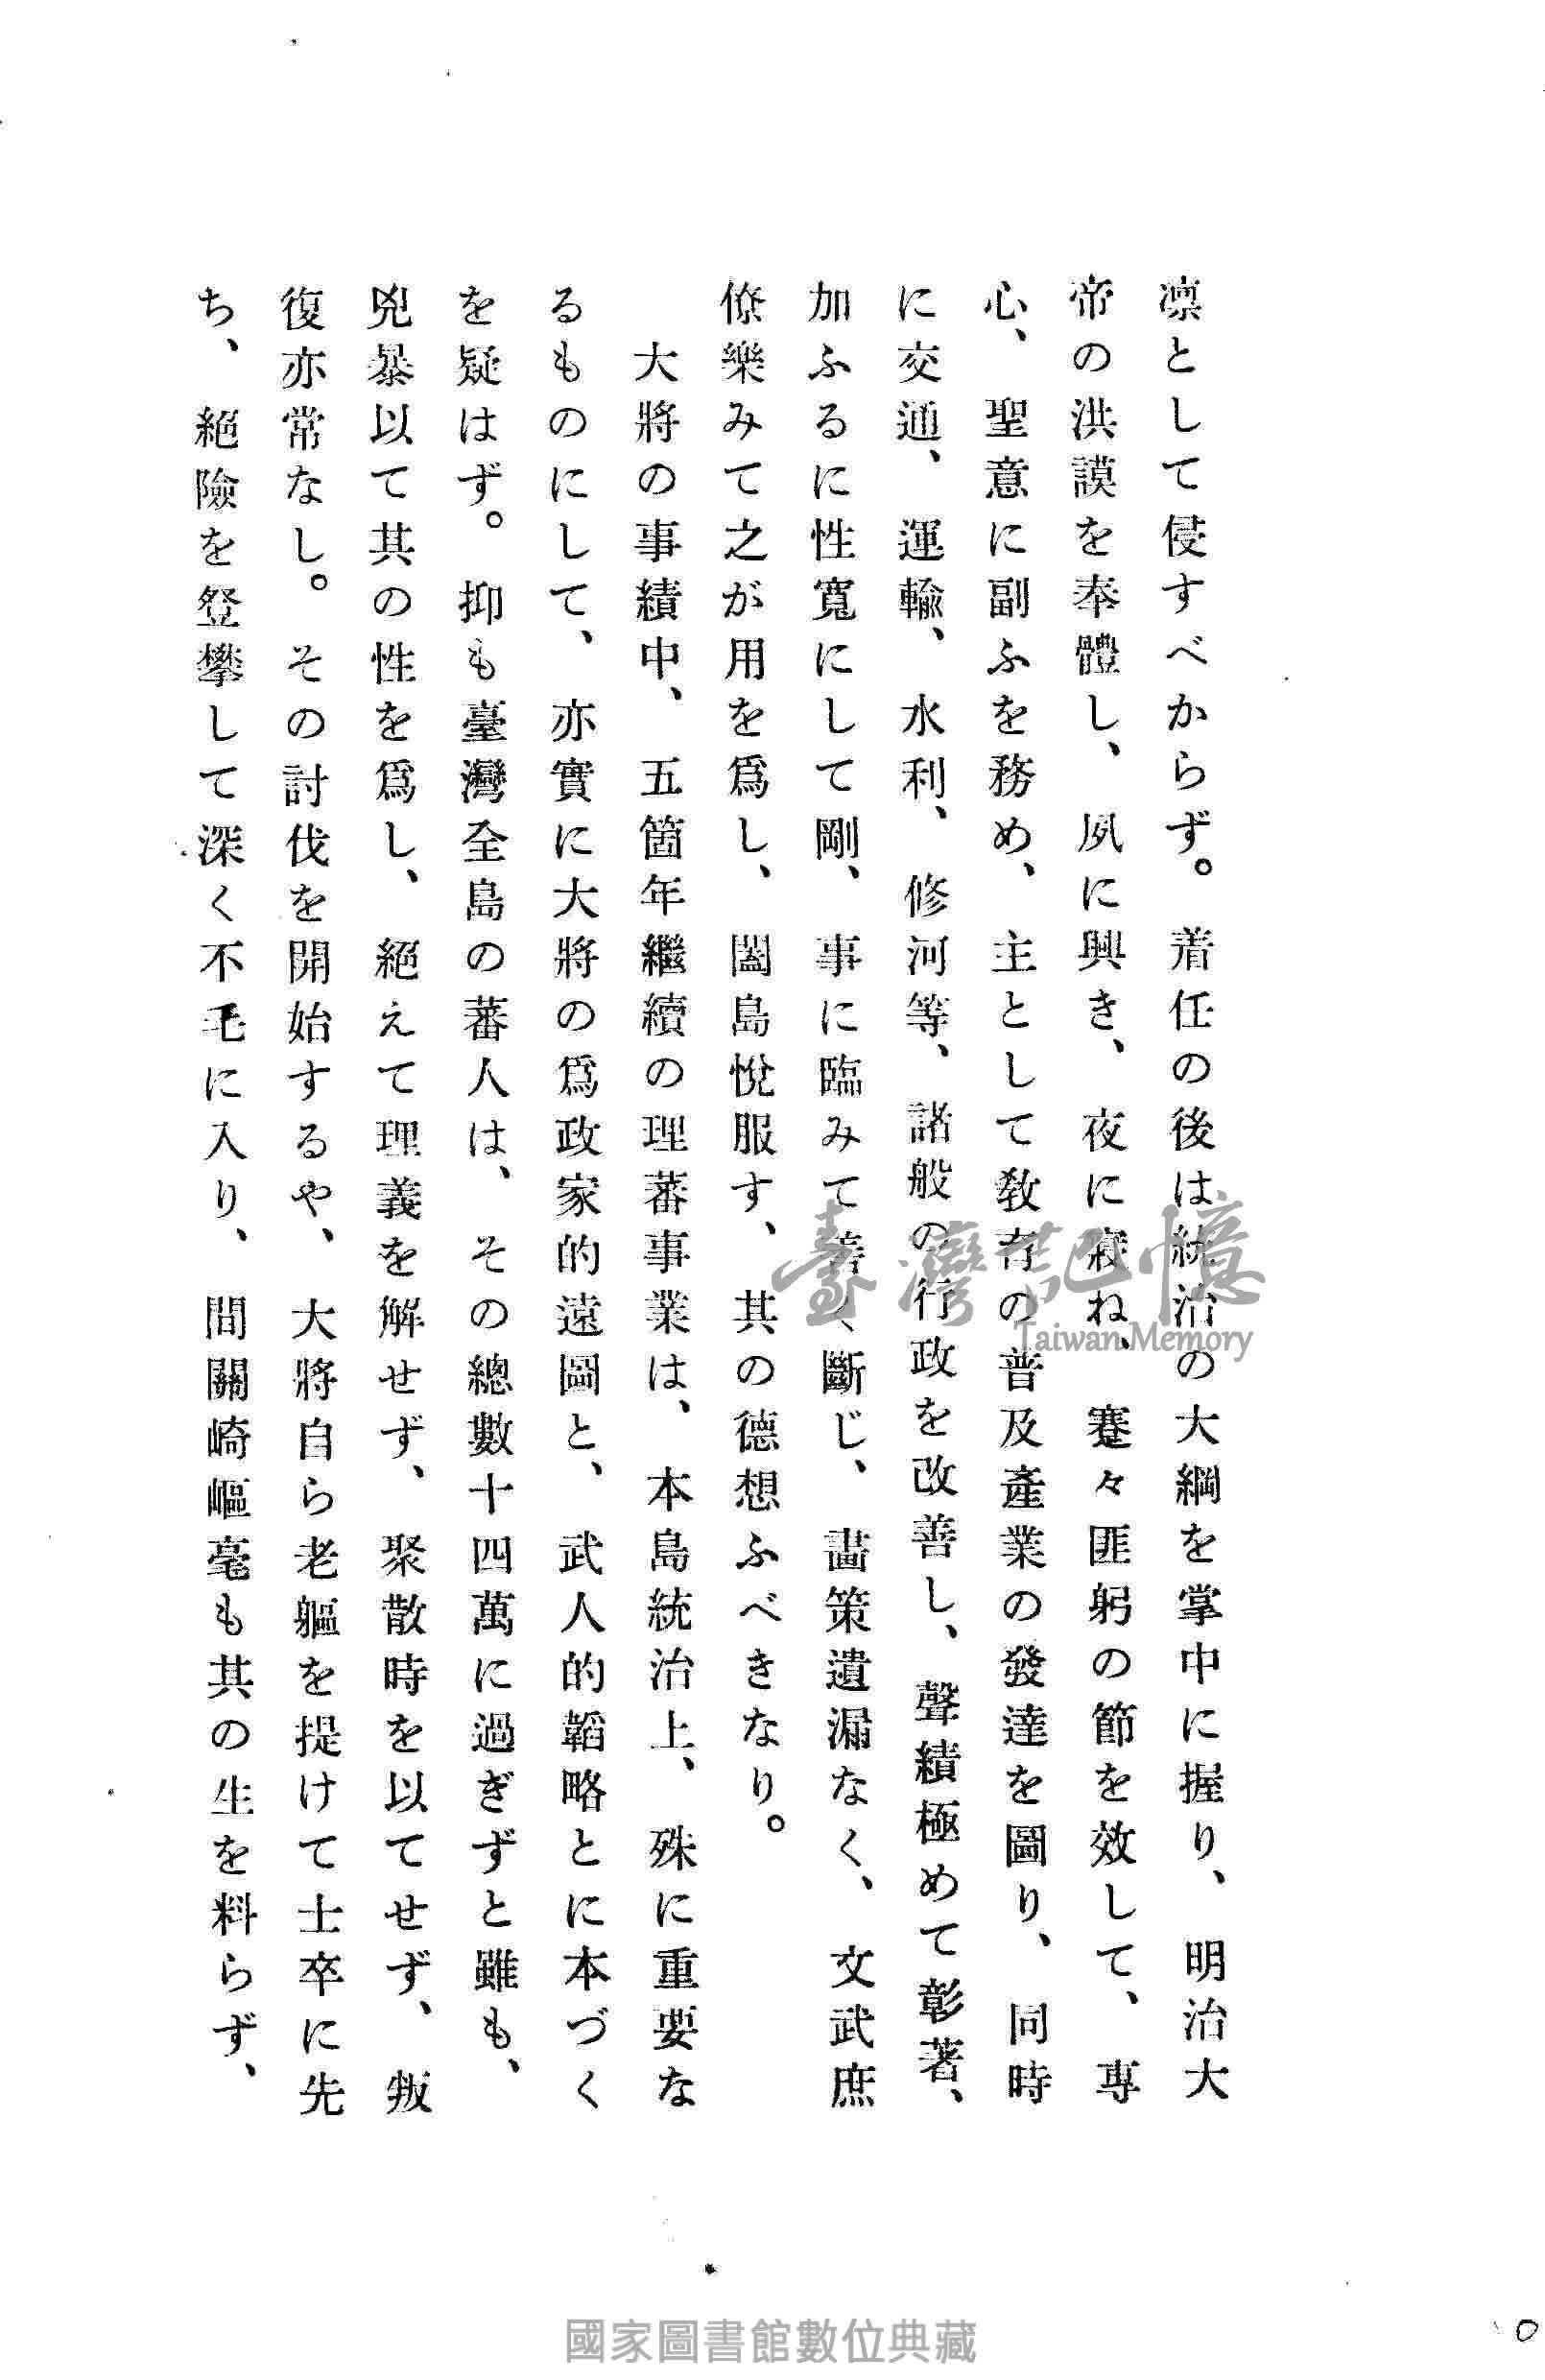 凛として侵すべからず。着任の後は統治の大綱を掌中に握り、明治大
帝の洪謨を奉體し、夙に興き、夜に寢ね、蹇々匪躬の節を效して、專
心、聖意に副ふを務め、主として敎育の普及產業の發達を圖り、同時
に交通、運輸、水利、修河等、諸般の行政を改善し、聲績極めて彰著、
加ふるに性寬にして剛、事に臨みて善く斷じ、畵策遺漏なく、文武庶
僚樂みて之が用を爲し、闔島悅服す、其の德想ふべきなり。
大將の事績中、五箇年繼續の理蕃事業は、本島統治上、殊に重要な
るものにして、亦實に大將の爲政家的遠圖と、武人的韜略とに本づく
を疑はず。抑も臺灣全島の蕃人は、その總數十四萬に過ぎずと雖も、
兇暴以て其の性を爲し、絕えて理義を解せず、聚散時を以てせず、叛
復亦常なし。その討伐を開始するや、大將自ら老軀を提けて士卒に先
ち、絕險を登攀して深く不毛に入り、間關崎嶇毫も其の生を料らず、
臺灣記憶
Taiwan Memory
國家圖書館數位典藏